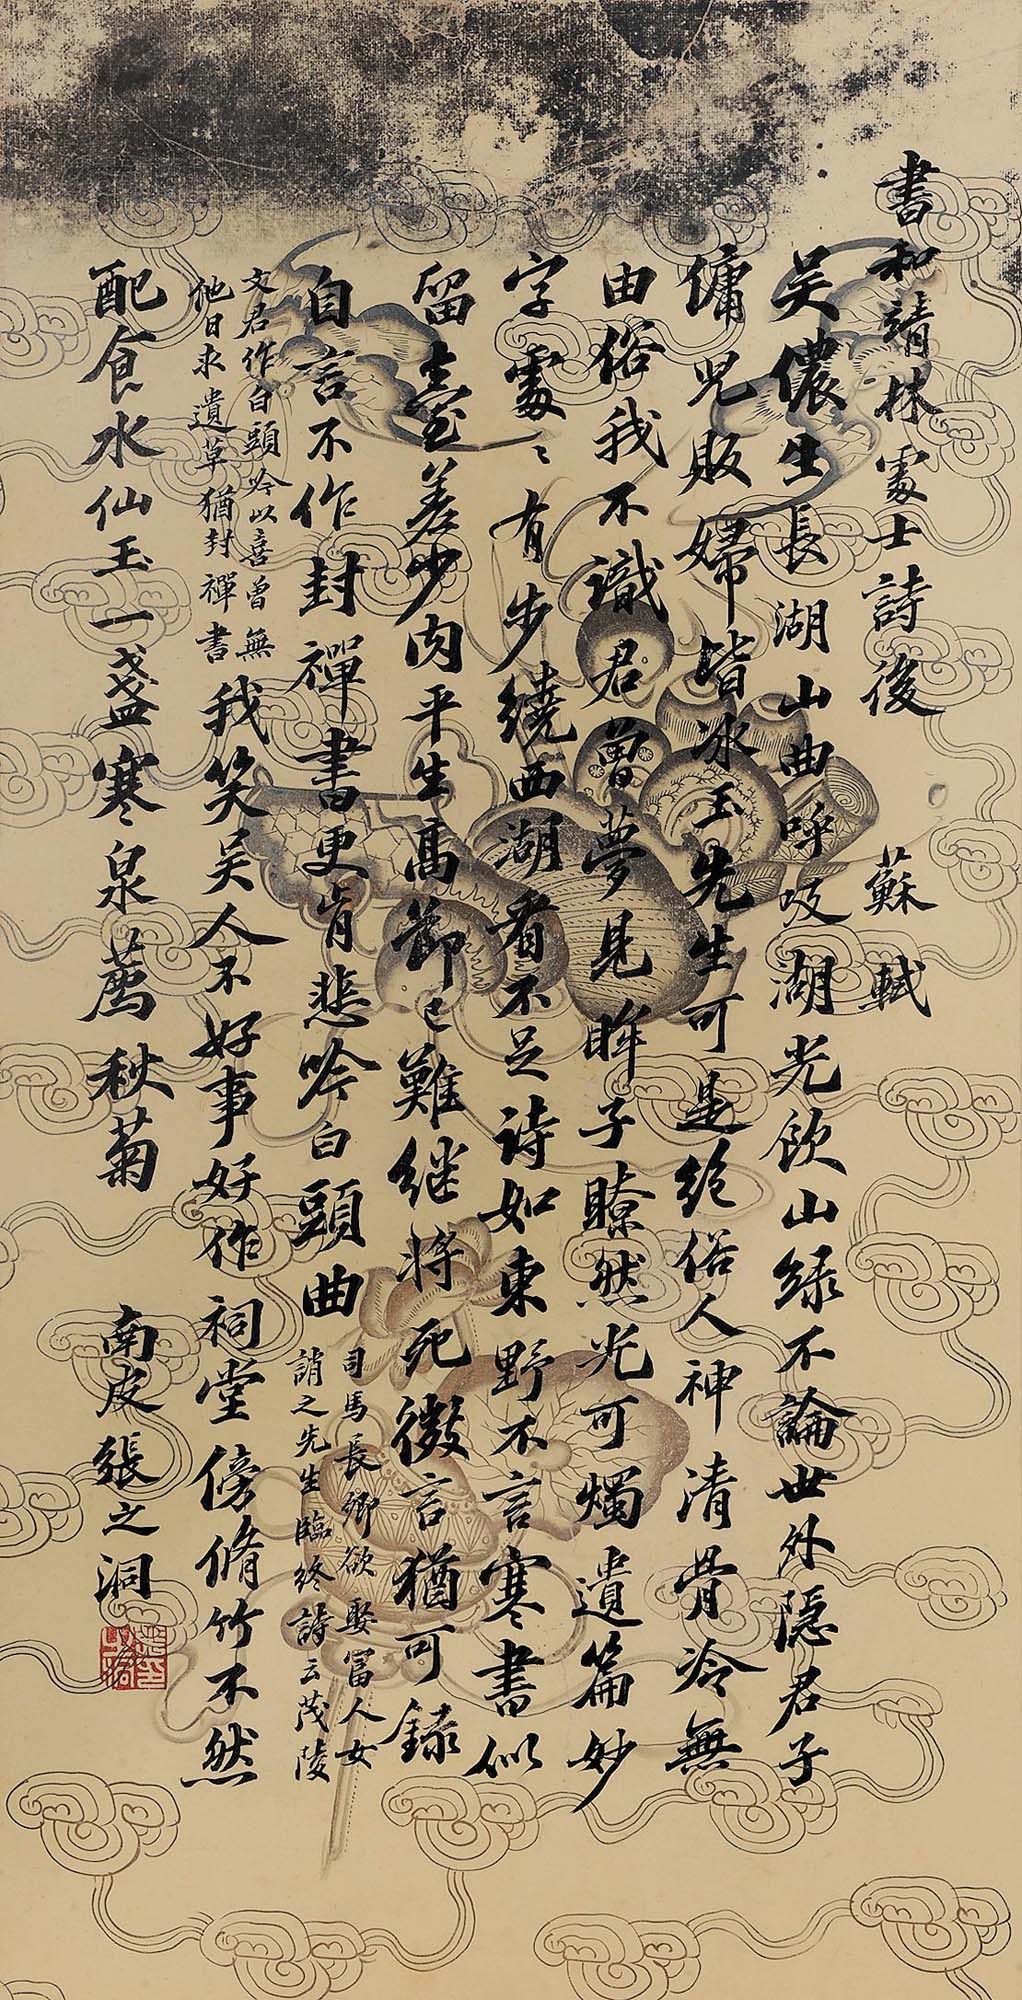 書和靖林處士詩後　蘇軾
吳儂生長湖山曲呼吸湖光飲山綠不論世外隱君子
傭兒販婦皆冰玉先生可是絕俗人神清骨冷無
由俗我不識君曾夢見眸子瞭然光可燭遺篇妙
字處〻有步繞西湖看不足詩如東野不言寒書似
留臺差少肉平生高節已難繼將死微言猶可錄
自言不作封禪書更肯悲吟白頭曲
司馬長卿欲娶富人女
文君作白頭吟以
誚之先生臨終詩云茂陵
他日求遺草猶封禪書
喜曾無
我笑吳人不好事好作祠堂傍脩竹不然
配食水仙王一盞寒泉薦秋菊　南皮張之洞